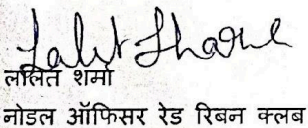 Lalit Sharma
ललित शर्मा
नोडल ऑफिसर रेड रिबन क्लब